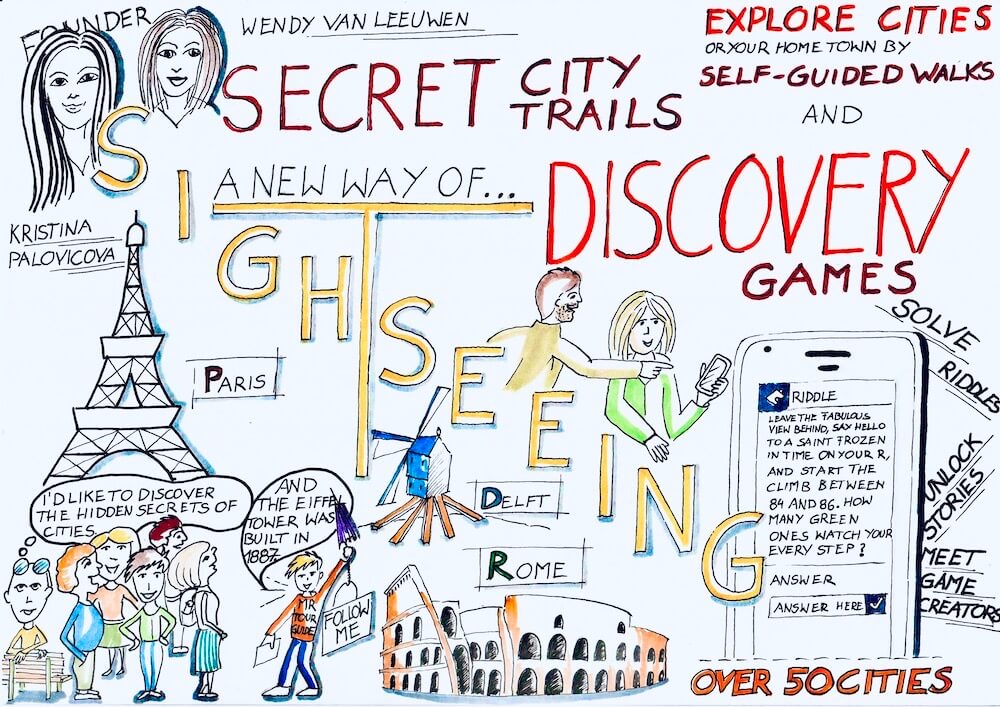 FOUNDER
WENDY VAN LEEUWEN
KRISTINA
PALOVICOVA
SECRET CITY
TRAILS
A NEW WAY OF...
SIGHTSEEING
EXPLORE CITIES
OR YOUR HOME TOWN BY
SELF-GUIDED WALKS
AND
DISCOVERY
GAMES
PARIS
DELFT
ROME
I'D LIKE TO DISCOVER
THE HIDDEN SECRETS OF
CITIES
AND
THE EIFFEL
TOWER WAS
BUILT IN
1887
MR
TOUR
GUIDE
FOLLOW
ME
RIDDLE
LEAVE THE FABULOUS
VIEW BEHIND, SAY HELLO
TO A SAINT FROZEN
IN TIME ON YOUR R,
AND START THE
CLIMB BETWEEN
84 AND 86. HOW
MANY GREEN
ONES WATCH YOUR
EVERY STEP?
ANSWER
ANSWER HERE
SOLVE
RIDDLES
UNLOCK
STORIES
MEET
GAME
CREATORS
OVER 50 CITIES